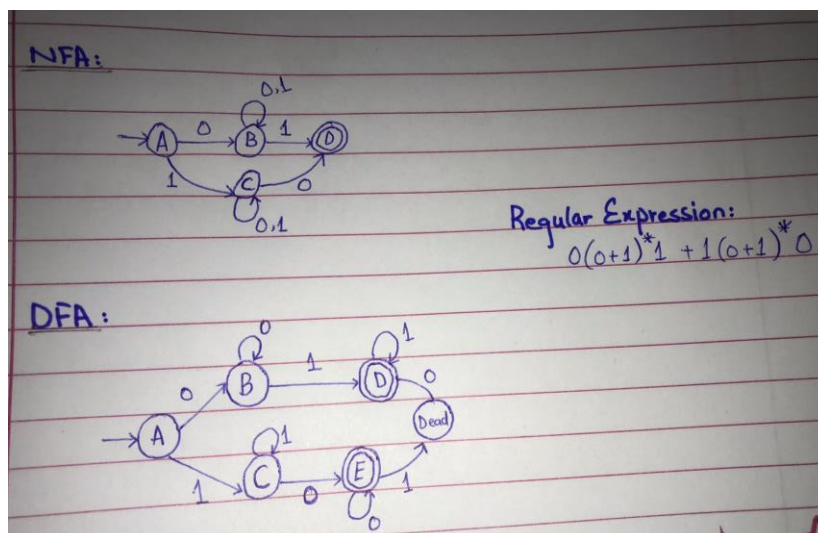 NFA:
0,1
A 0 B 1 D
1 C 0
0,1
Regular Expression:
0(0+1)*1 + 1(0+1)*0
DFA:
0 1
0 B 1 D 0
A Dead
1 C 0 E 1
1
0